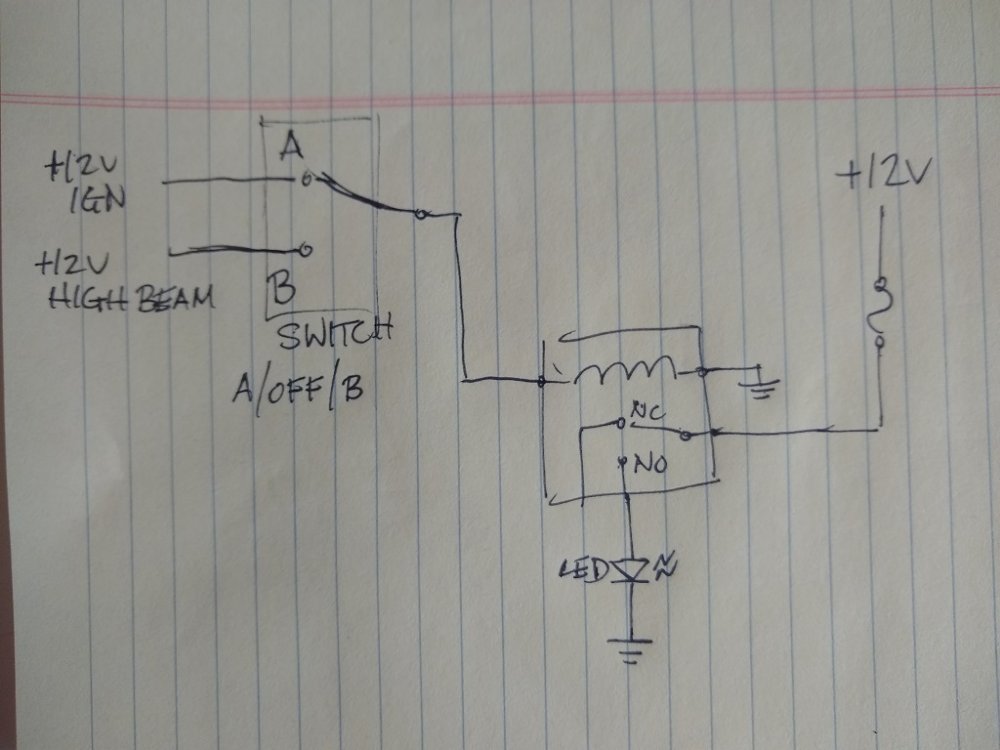 +12V
IGN
+12V
HIGH BEAM
A
B
SWITCH
A/OFF/B
+12V
NC
NO
LED